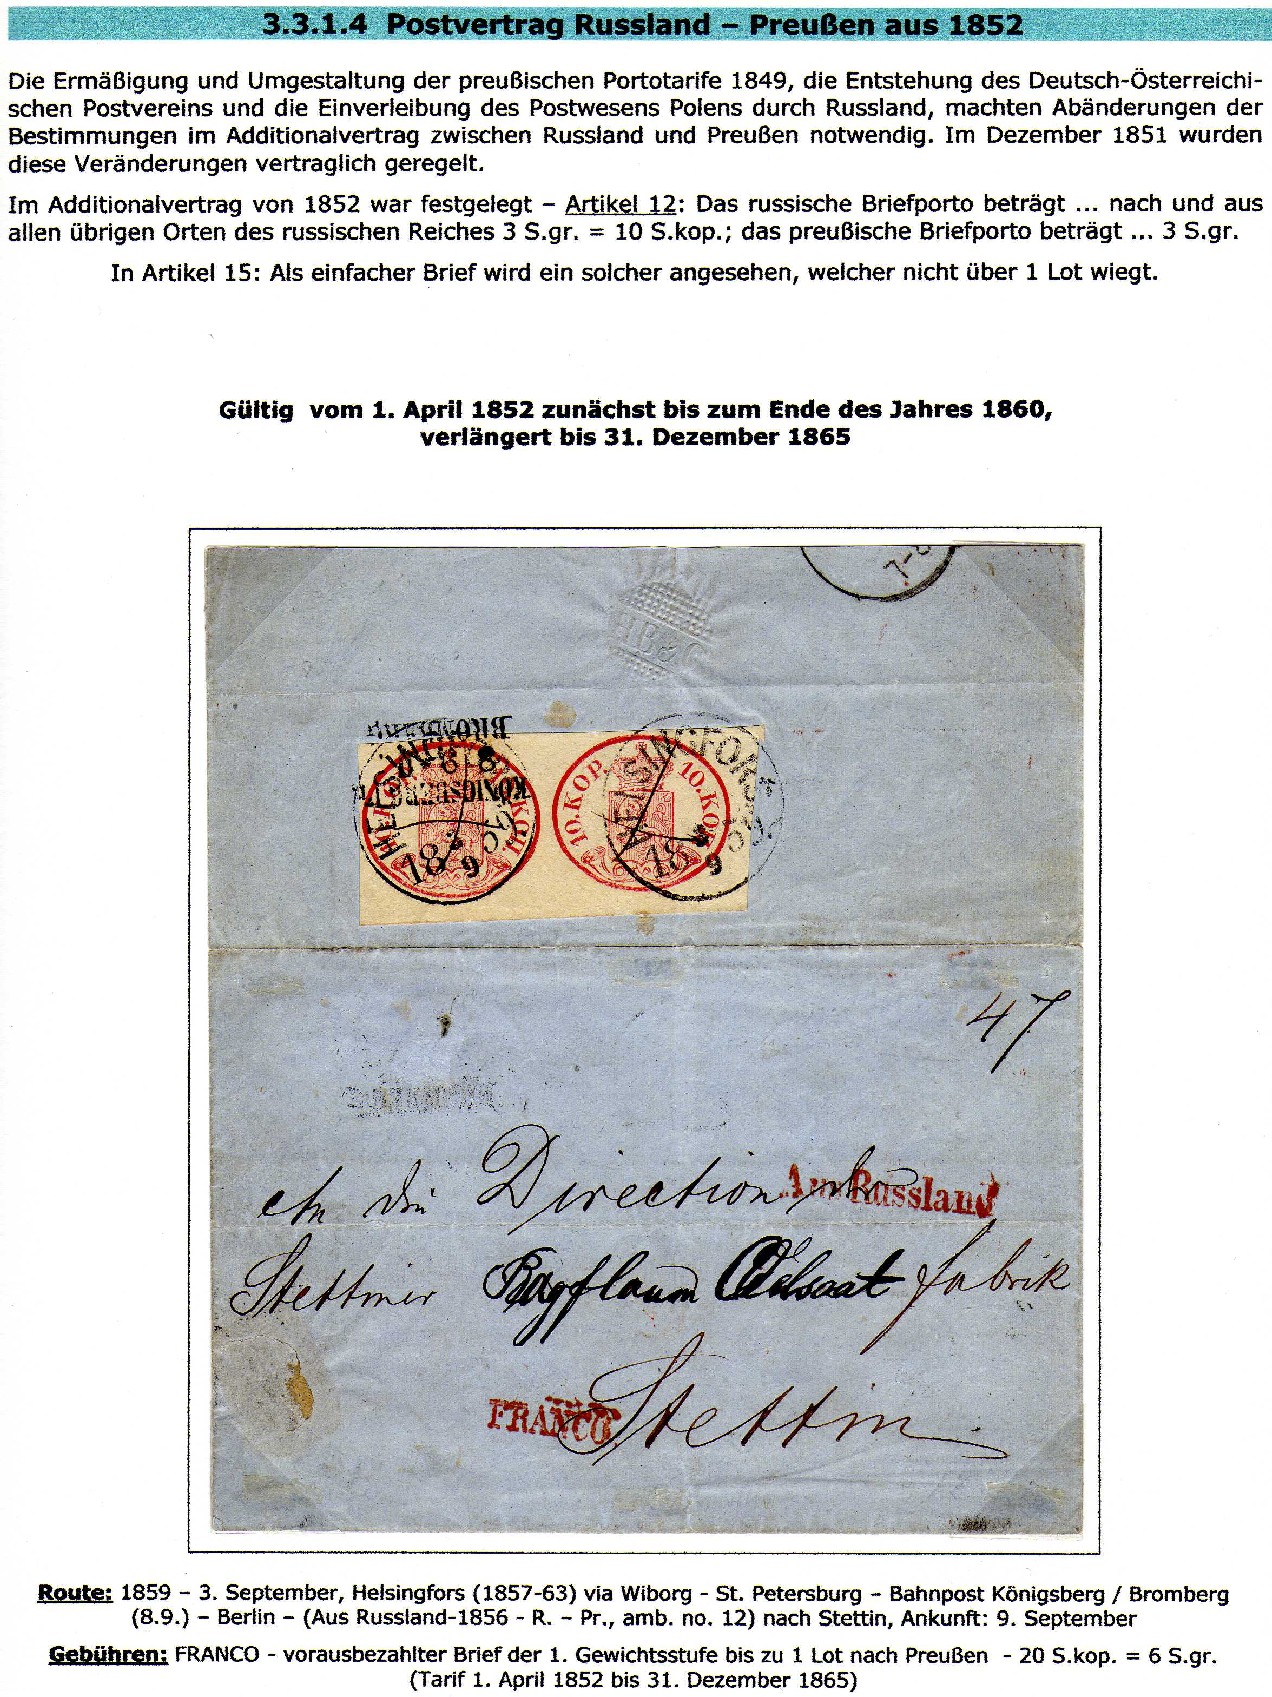 3.3.1.4 Postvertrag Russland – Preußen aus 1852
Die Ermäßigung und Umgestaltung der preußischen Portotarife 1849, die Entstehung des Deutsch-Österreichi-
schen Postvereins und die Einverleibung des Postwesens Polens durch Russland, machten Abänderungen der
Bestimmungen im Additionalvertrag zwischen Russland und Preußen notwendig. Im Dezember 1851 wurden
diese Veränderungen vertraglich geregelt.
Im Additionalvertrag von 1852 war festgelegt – Artikel 12: Das russische Briefporto beträgt ... nach und aus
allen übrigen Orten des russischen Reiches 3 S.gr. = 10 S.kop.; das preußische Briefporto beträgt ... 3 S.gr.
In Artikel 15: Als einfacher Brief wird ein solcher angesehen, welcher nicht über 1 Lot wiegt.
Gültig vom 1. April 1852 zunächst bis zum Ende des Jahres 1860,
verlängert bis 31. Dezember 1865
7-8
HB & C
BROMBERG
KÖNIGSBERG
HELSINGFORS
10.KOP. 10.КОП.
HELSINGFORS
18 3/9 59
18 3/9 59
47
An die Direction der
Aus Russland
Stettiner Fabrik
FRANCO
Stettin
Route: 1859 – 3. September, Helsingfors (1857-63) via Wiborg - St. Petersburg – Bahnpost Königsberg / Bromberg
(8.9.) – Berlin – (Aus Russland-1856 - R. – Pr., amb. no. 12) nach Stettin, Ankunft: 9. September
Gebühren: FRANCO - vorausbezahlter Brief der 1. Gewichtsstufe bis zu 1 Lot nach Preußen - 20 S.kop. = 6 S.gr.
(Tarif 1. April 1852 bis 31. Dezember 1865)